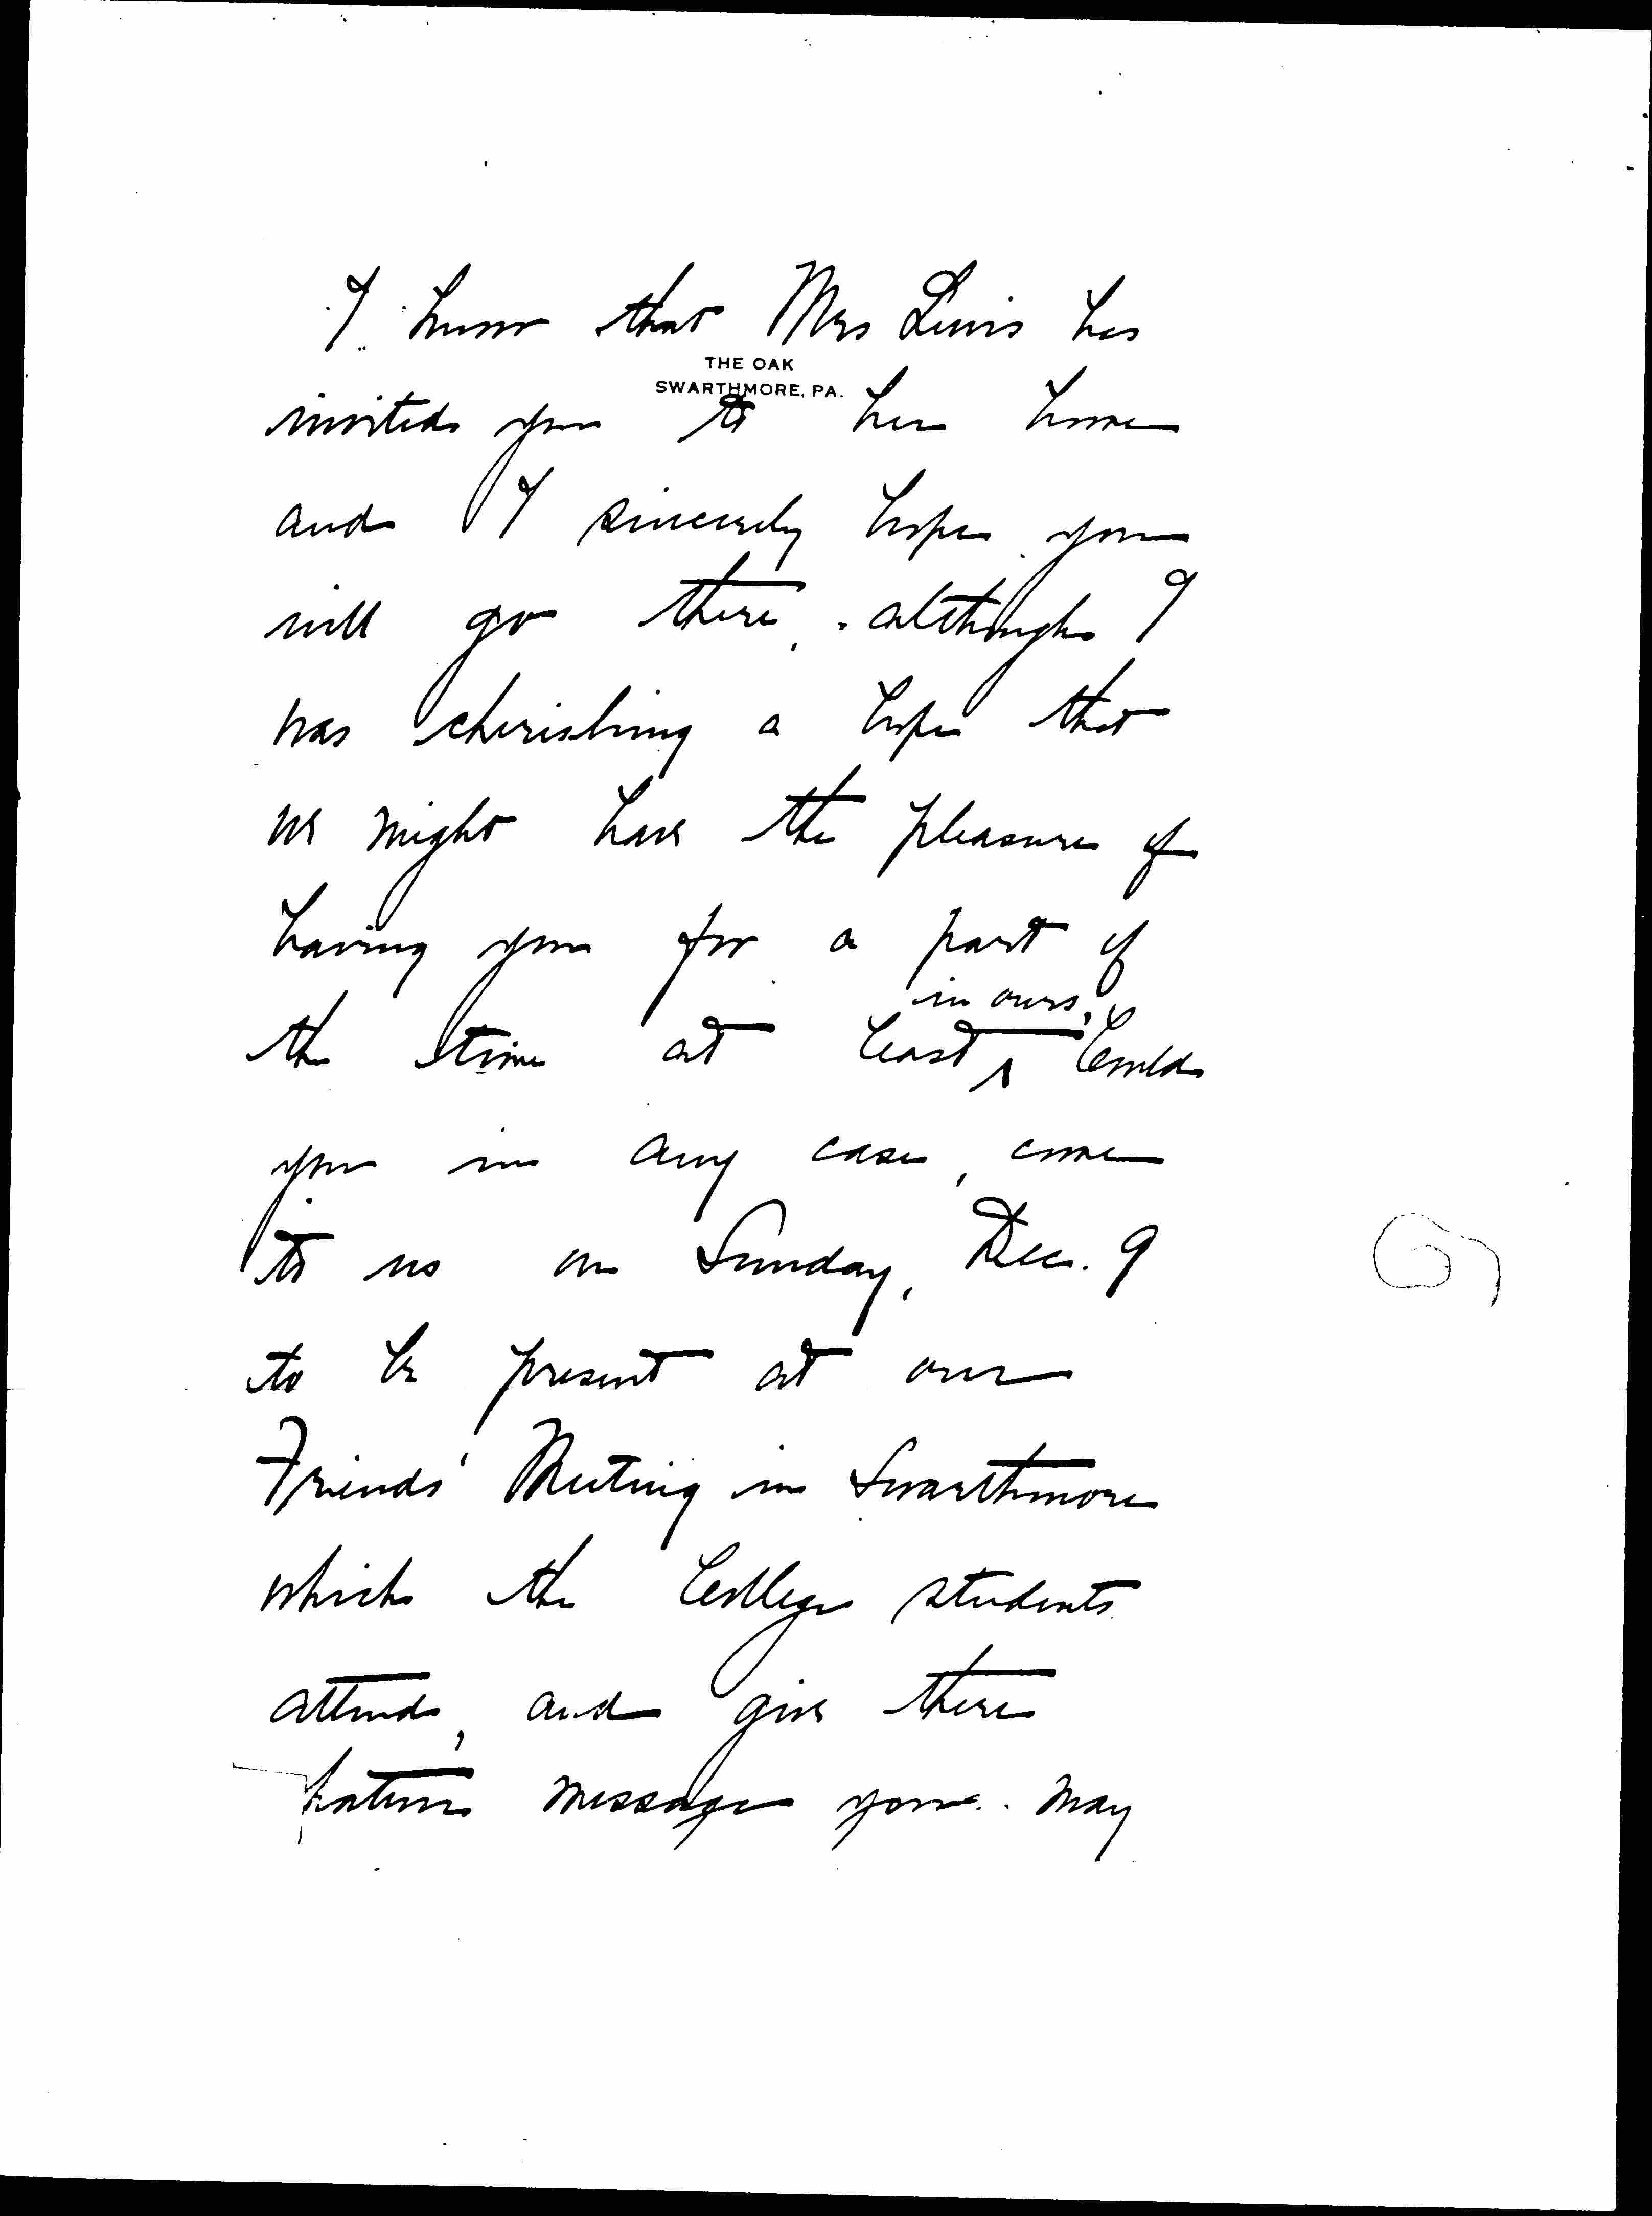 I know that Mrs Lewis has
THE OAK
SWARTHMORE, PA.
invited you to her home
and I sincerely hope you
will go there, although I
was cherishing a hope that
we might have the pleasure of
having you for a part of
in ours,
the time at least ^ Could
you in any case, come
to us on Sunday, Dec. 9
to be present at our
Friends' Meeting in Swarthmore
which the College students
attend, and give there
message you may